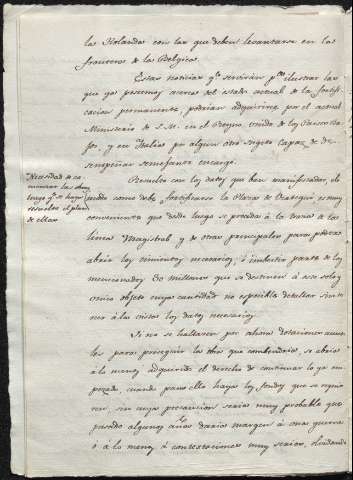 las Holandas con las que deben levantarse en las
fronteras de las Belgicas.
Estas noticias qe. servirán pa. ilustrar las
que ya poseemos acerca del estado actual de la fortifi-
cacion permanente, podrian adquirirse por el actual
Ministerio de S.M. en el Reyno unido de los Paises Ba-
jos, y en Italia por algun otro sugeto capaz de de-
sempeñar semejante encargo.
Necesidad de co-
menzar las obras
luego qe. se haya
resuelto el plan
de ellas
Resuelto con los datos que han manifestado, el
modo como debe fortificarse la Plaza de es muy
conveniente que desde luego se proceda á la traza de las
lineas Magistral y de otras principales para poder
abrir los cimientos necesarios, é imbertir parte de los
mencionados 30 millones que se destinen á este solo y
unico objeto cuya cantidad no es posible detallar sin te-
ner á la vista los datos necesarios.
Si no se hallasen por ahora dotaciones anua-
les para proseguir las obras que comprendiere, se abria
á lo menos adquirido el derecho de continuar lo ya em-
pezado, cuando para ello haya los fondos que se requie-
ren sin cuya precaucion seria muy probable que
pasado algunos años daria margen á una guerra
ó á lo menos á contestaciones muy serias, olvidando